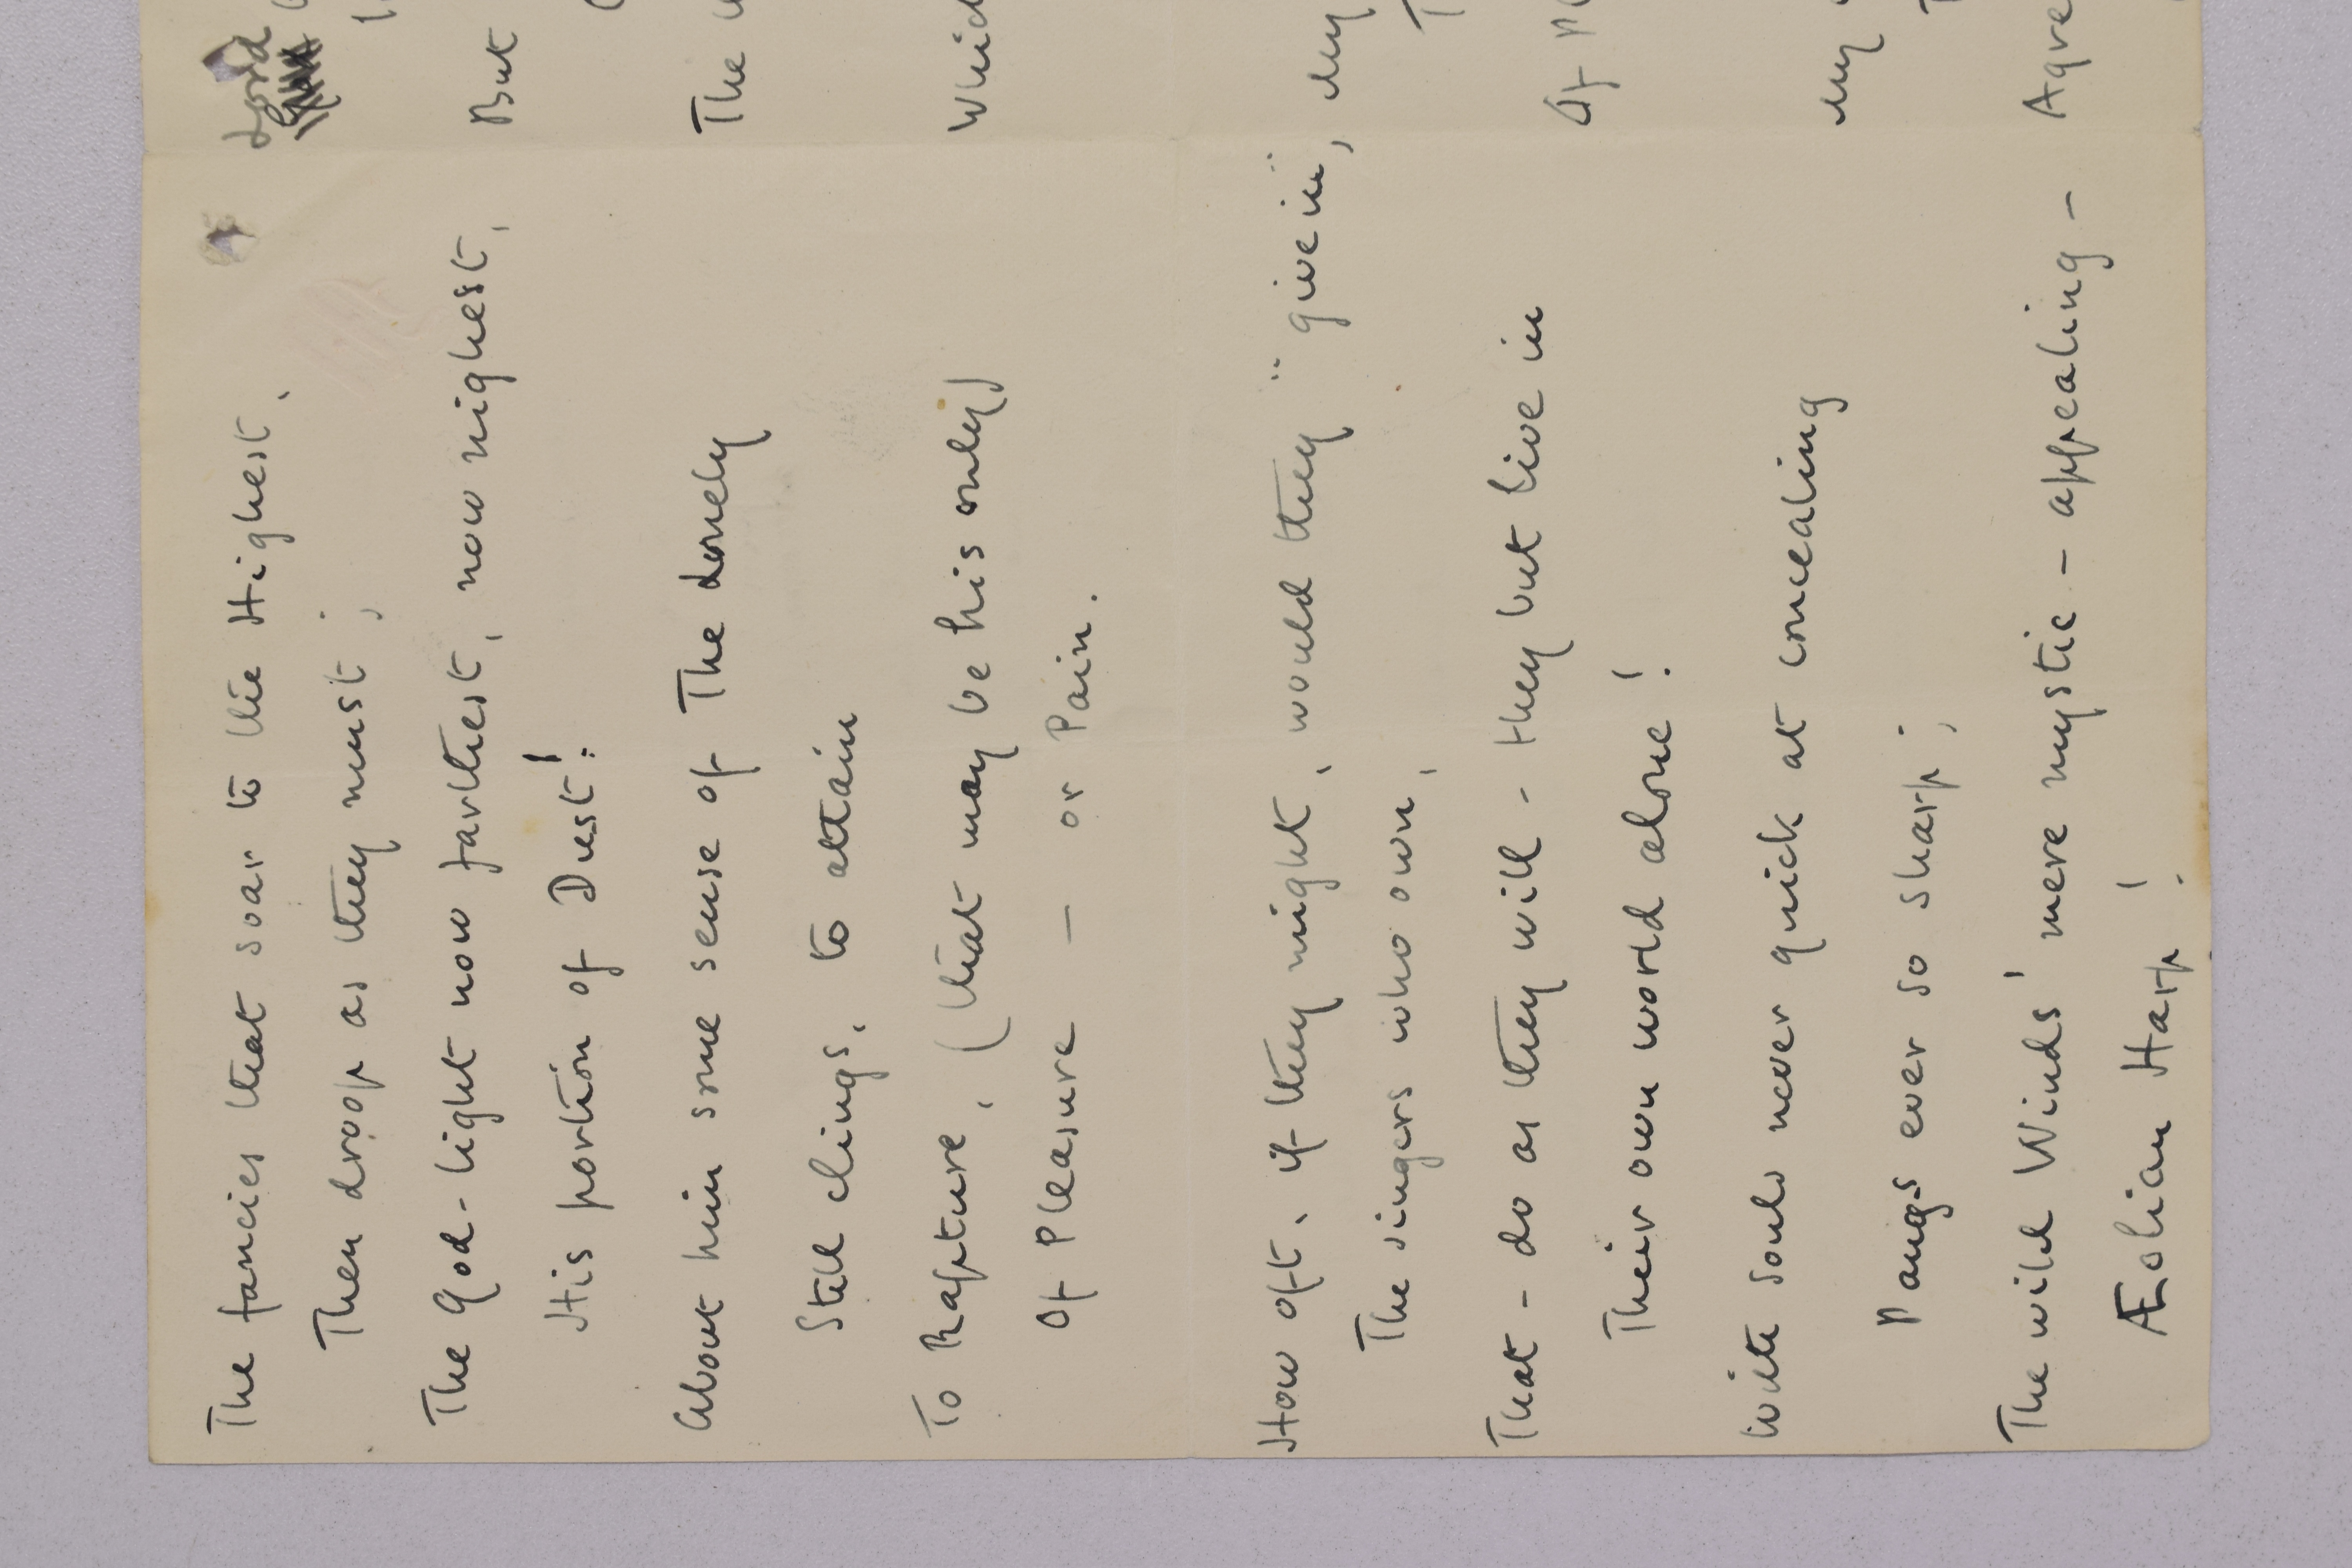 The fancies that soar to the Highest,
Then droop as they must;
The God-light now farthest, now nighest,
His portion of Dust!
About him some sense of The Lonely
Still clings, to attain
To Rapture, (that may be his only)
Of Pleasure — or Pain.
How oft, if they might, would they "give in",
The singers who own,
That - do as they will - they but live in
Their own world alone!
With souls never quick at concealing
Pangs ever so sharp;
The wild Winds' mere mystic - appealing -
Æolian Harp!
Lord
But
The
My
Of
My